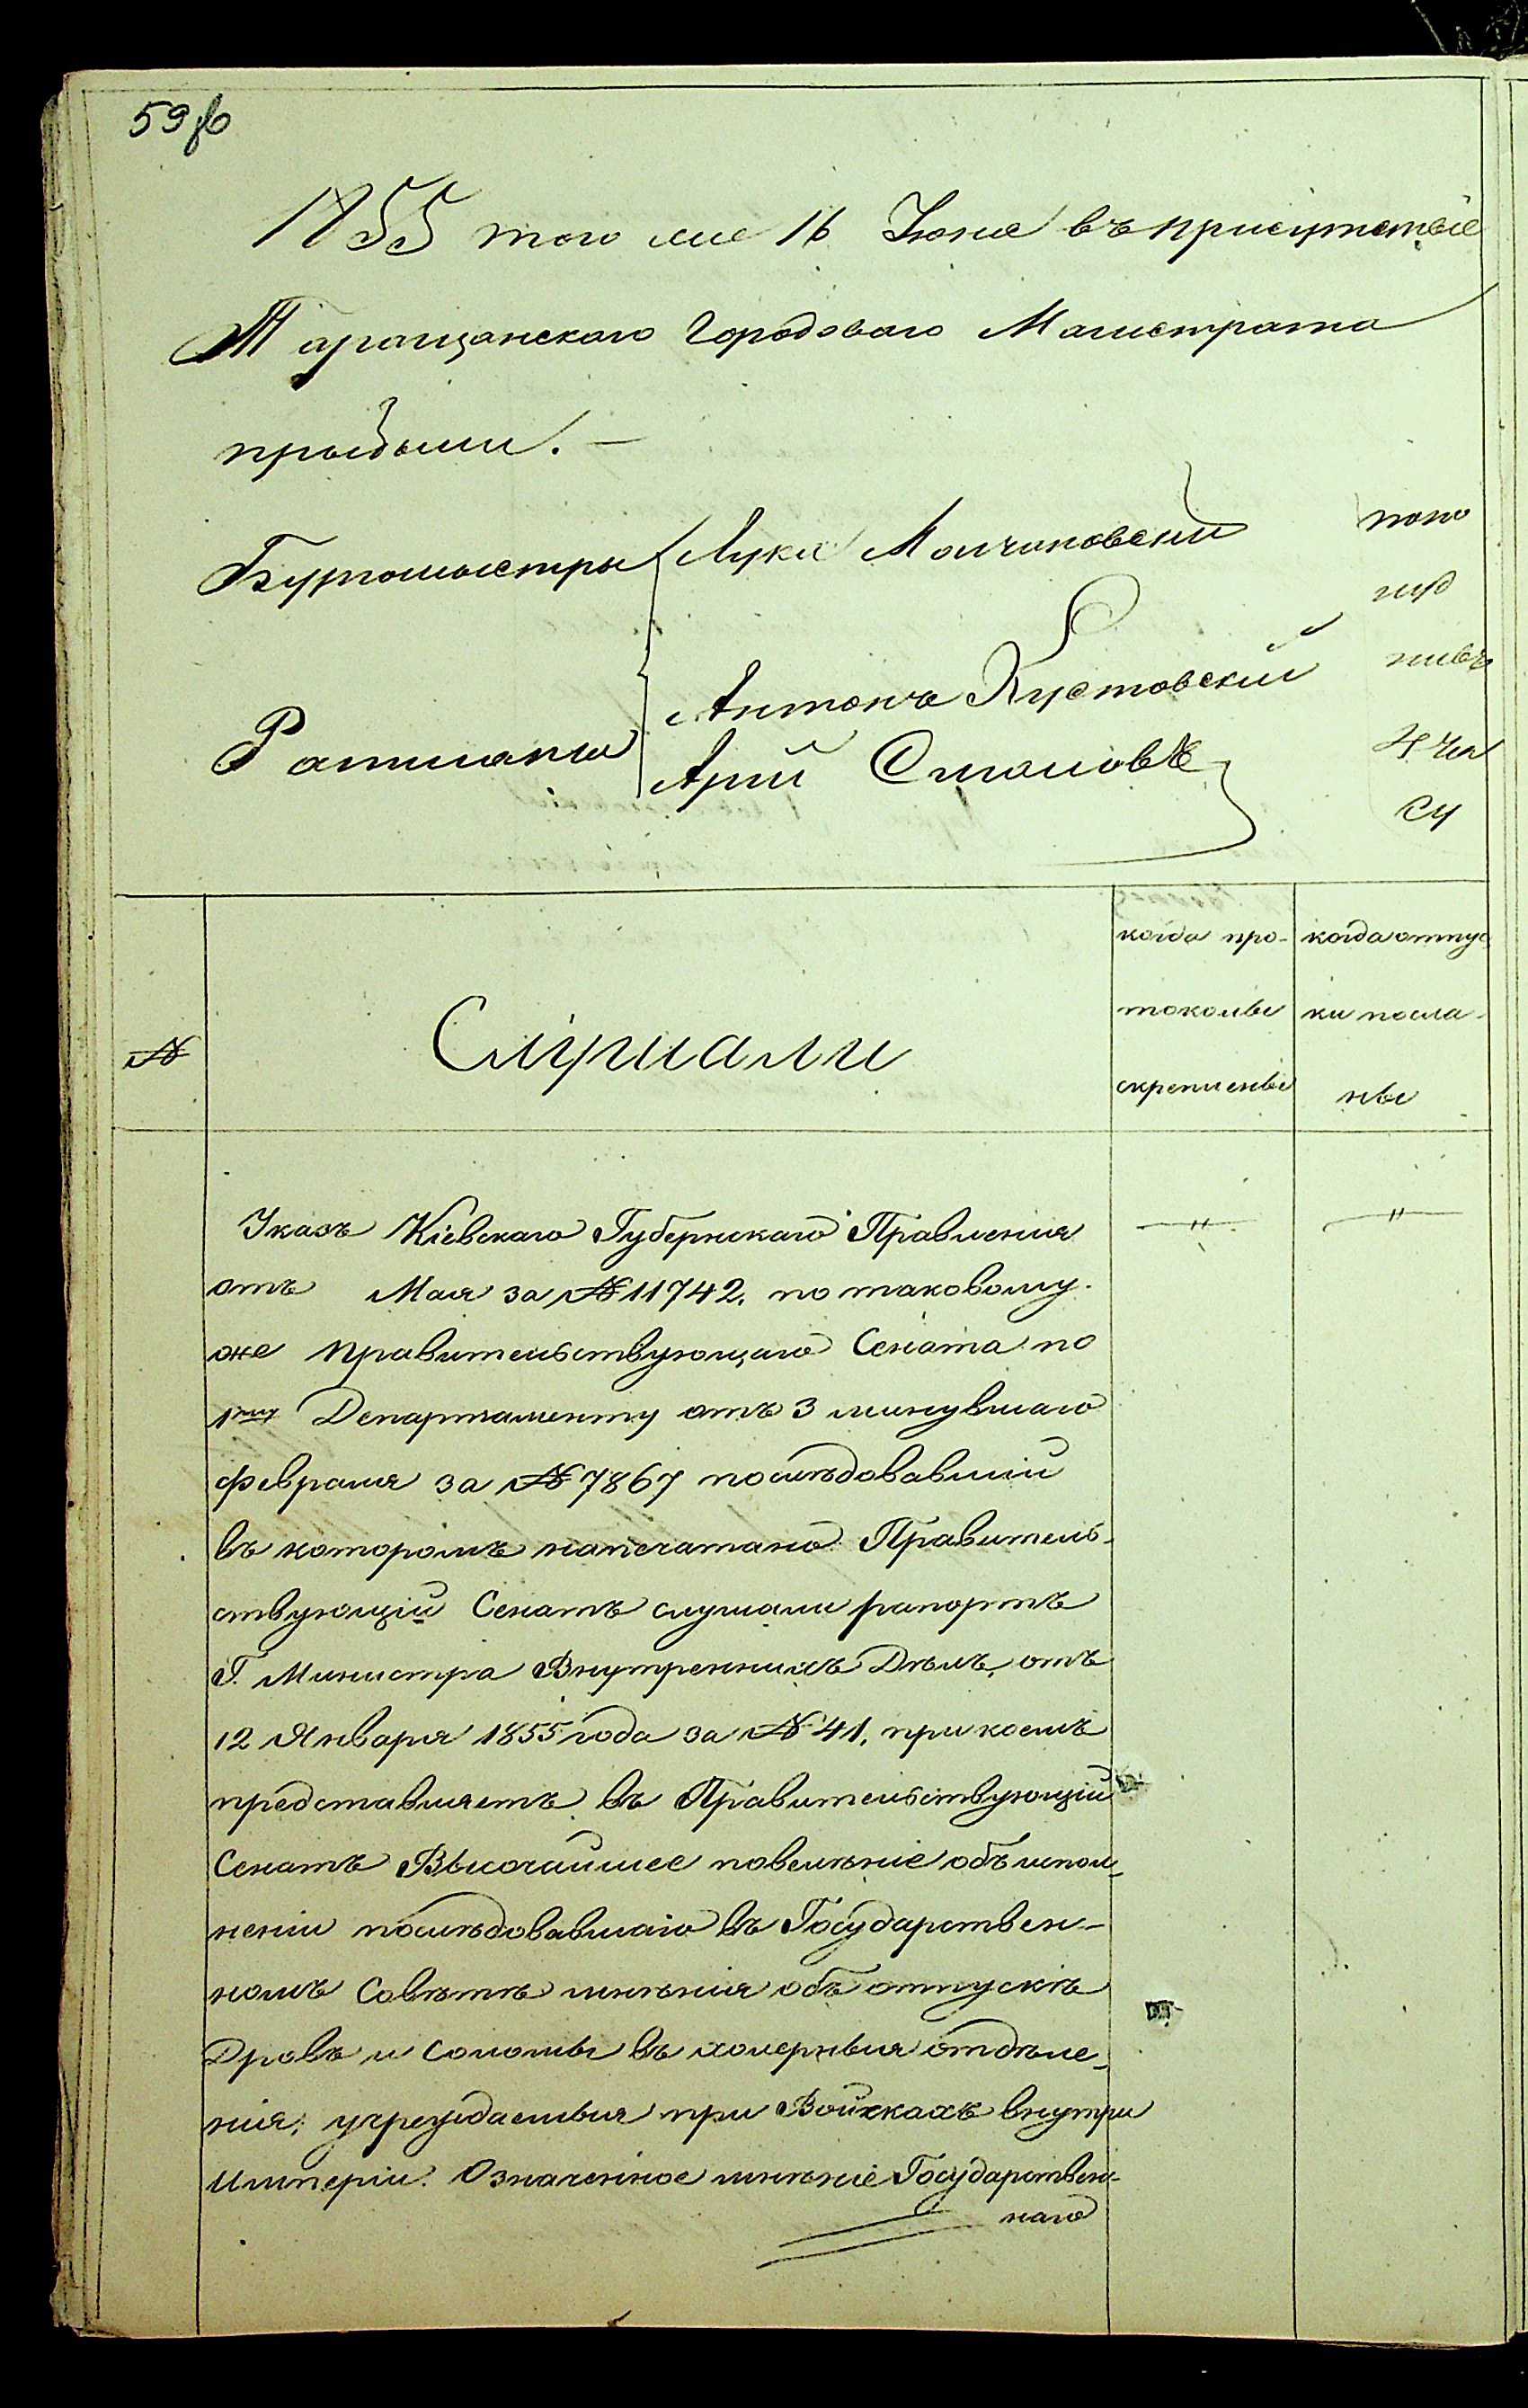 59 об
1855 того же 16 Юня въ присутствіе
Таращанскаго Городоваго Магистрата
прыбыли. —
Бургомыстры Лука Молчановский
Антонъ Кустовскій
Ратманы Арій Смоловъ
попо
4 час
№
Слушали
когда про-
токолы
скреплены
когда отпус
ки посла-
ны
Указъ Кіевскаго Губернскаго Правленія
отъ Мая за № 11742. по таковому
же Правительствующаго Сената по
1му Департаменту отъ 3 минувшаго
февраля за № 7867 послѣдовавшій
въ которомъ напечатано: Правитель-
ствующій Сенатъ слушали рапортъ
Г. Министра Внутреннихъ Дѣлъ, отъ
12 Января 1855 года за № 41, при коемъ
представляетъ въ Правительствующій
Сенатъ Высочайшее повелѣніе объ испол
неніи послѣдовавшаго въ Государствен-
номъ Совѣтѣ мнѣнія объ отпускѣ
Дровъ и Соломы въ холерныя отдѣле-
нія, учреждаемыя при Войскахъ внутри
Имперіи. Означенное мнѣніе Государствен-
наго